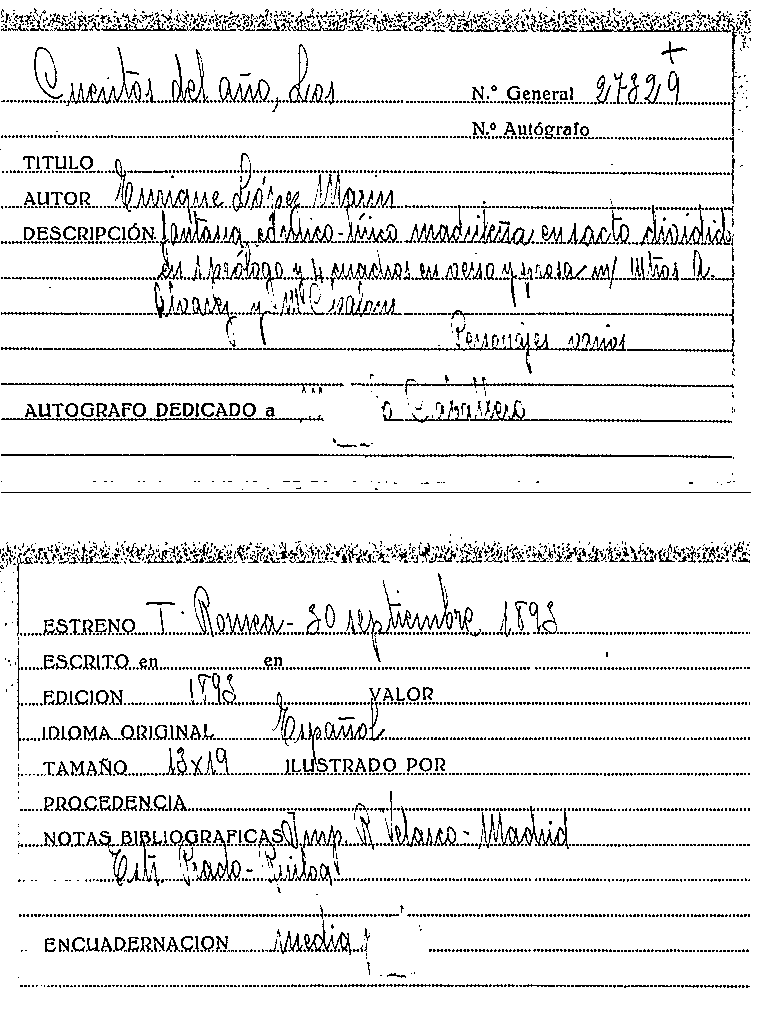 Cuentos del año, Los
N.º General 27329
N.º Autógrafo
TITULO
AUTOR Enrique López Marin
DESCRIPCIÓN fantasia, cómico-lírico madrileña en 1 acto dividido
en 1 prólogo y 4 cuadros en verso y prosa m/ Mtros A.
Alvarez y
Personajes varios
AUTOGRAFO DEDICADO a Caballero
ESTRENO T. Romea - 30 septiembre 1893
ESCRITO en en
EDICION 1893 VALOR
IDIOMA ORIGINAL Español
TAMAÑO 13x19 ILUSTRADO POR
PROCEDENCIA
NOTAS BIBLIOGRAFICAS Imp. R Velasco - Madrid
Estr. Prado -
ENCUADERNACION media